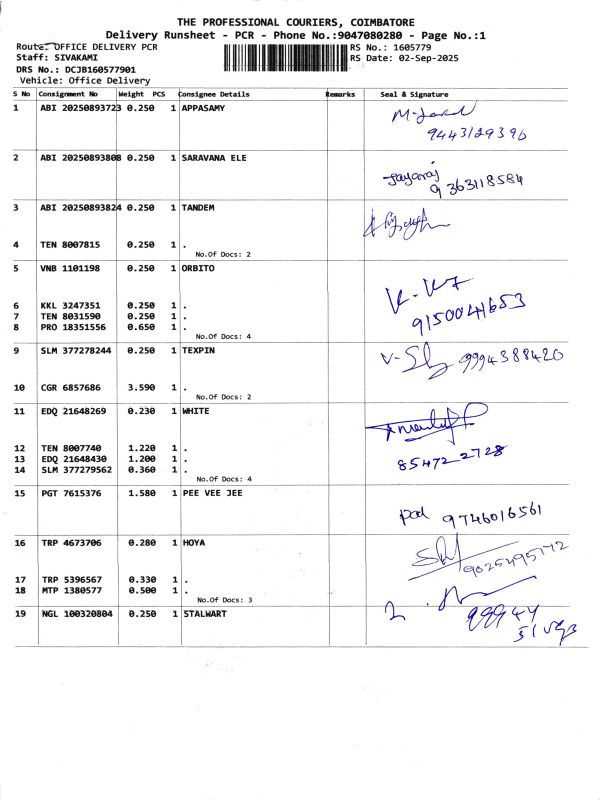 THE PROFESSIONAL COURIERS, COIMBATORE
Delivery Runsheet - PCR - Phone No.:9047080280 - Page No.:1
Route: OFFICE DELIVERY PCR RS No.: 1605779
Staff: SIVAKAMI RS Date: 02-Sep-2025
DRS No.: DCJB160577901
Vehicle: Office Delivery
S No Consignment No Weight PCS Consignee Details Remarks Seal & Signature
1 ABI 20250893723 0.250 1 APPASAMY
9443129396
2 ABI 20250893808 0.250 1 SARAVANA ELE
Jayaraj
9363118584
3 ABI 20250893824 0.250 1 TANDEM
4 TEN 8007815 0.250 1 .
No.Of Docs: 2
5 VNB 1101198 0.250 1 ORBITO
6 KKL 3247351 0.250 1 .
7 TEN 8031590 0.250 1 .
9150041653
8 PRO 18351556 0.650 1 .
No.Of Docs: 4
9 SLM 377278244 0.250 1 TEXPIN 9994388420
10 CGR 6857686 3.590 1 .
No.Of Docs: 2
11 EDQ 21648269 0.230 1 WHITE
12 TEN 8007740 1.220 1 .
13 EDQ 21648430 1.200 1 .
85472 2728
14 SLM 377279562 0.360 1 .
No.Of Docs: 4
15 PGT 7615376 1.580 1 PEE VEE JEE
9746016561
16 TRP 4673706 0.280 1 HOYA
9025495172
17 TRP 5396567 0.330 1 .
18 MTP 1380577 0.500 1 .
No.Of Docs: 3
19 NGL 100320804 0.250 1 STALWART
99944